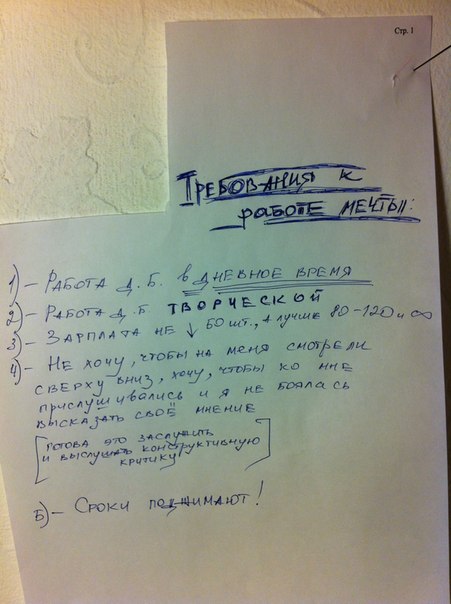 Стр. 1
ТРЕБОВАНИЯ К
РАБОТЕ МЕЧТЫ:
1) – РАБОТА Д. Б. в ДНЕВНОЕ ВРЕМЯ
2) – РАБОТА Д. Б. ТВОРЧЕСКОЙ
3) – ЗАРПЛАТА НЕ ↓ 50 шт., А лучше 80-120 и ∞
4) – НЕ ХОЧУ, ЧТОБЫ НА МЕНЯ СМОТРЕЛИ
СВЕРХУ ВНИЗ, ХОЧУ, ЧТОБЫ КО МНЕ
ПРИСЛУШИВАЛИСЬ И Я НЕ БОЯЛАСЬ
ВЫСКАЗАТЬ СВОЁ МНЕНИЕ
[ГОТОВА ЭТО ЗАСЛУЖИТЬ
И ВЫСЛУШАТЬ КОНСТРУКТИВНУЮ
КРИТИКУ]
5) – СРОКИ ПОДЖИМАЮТ!